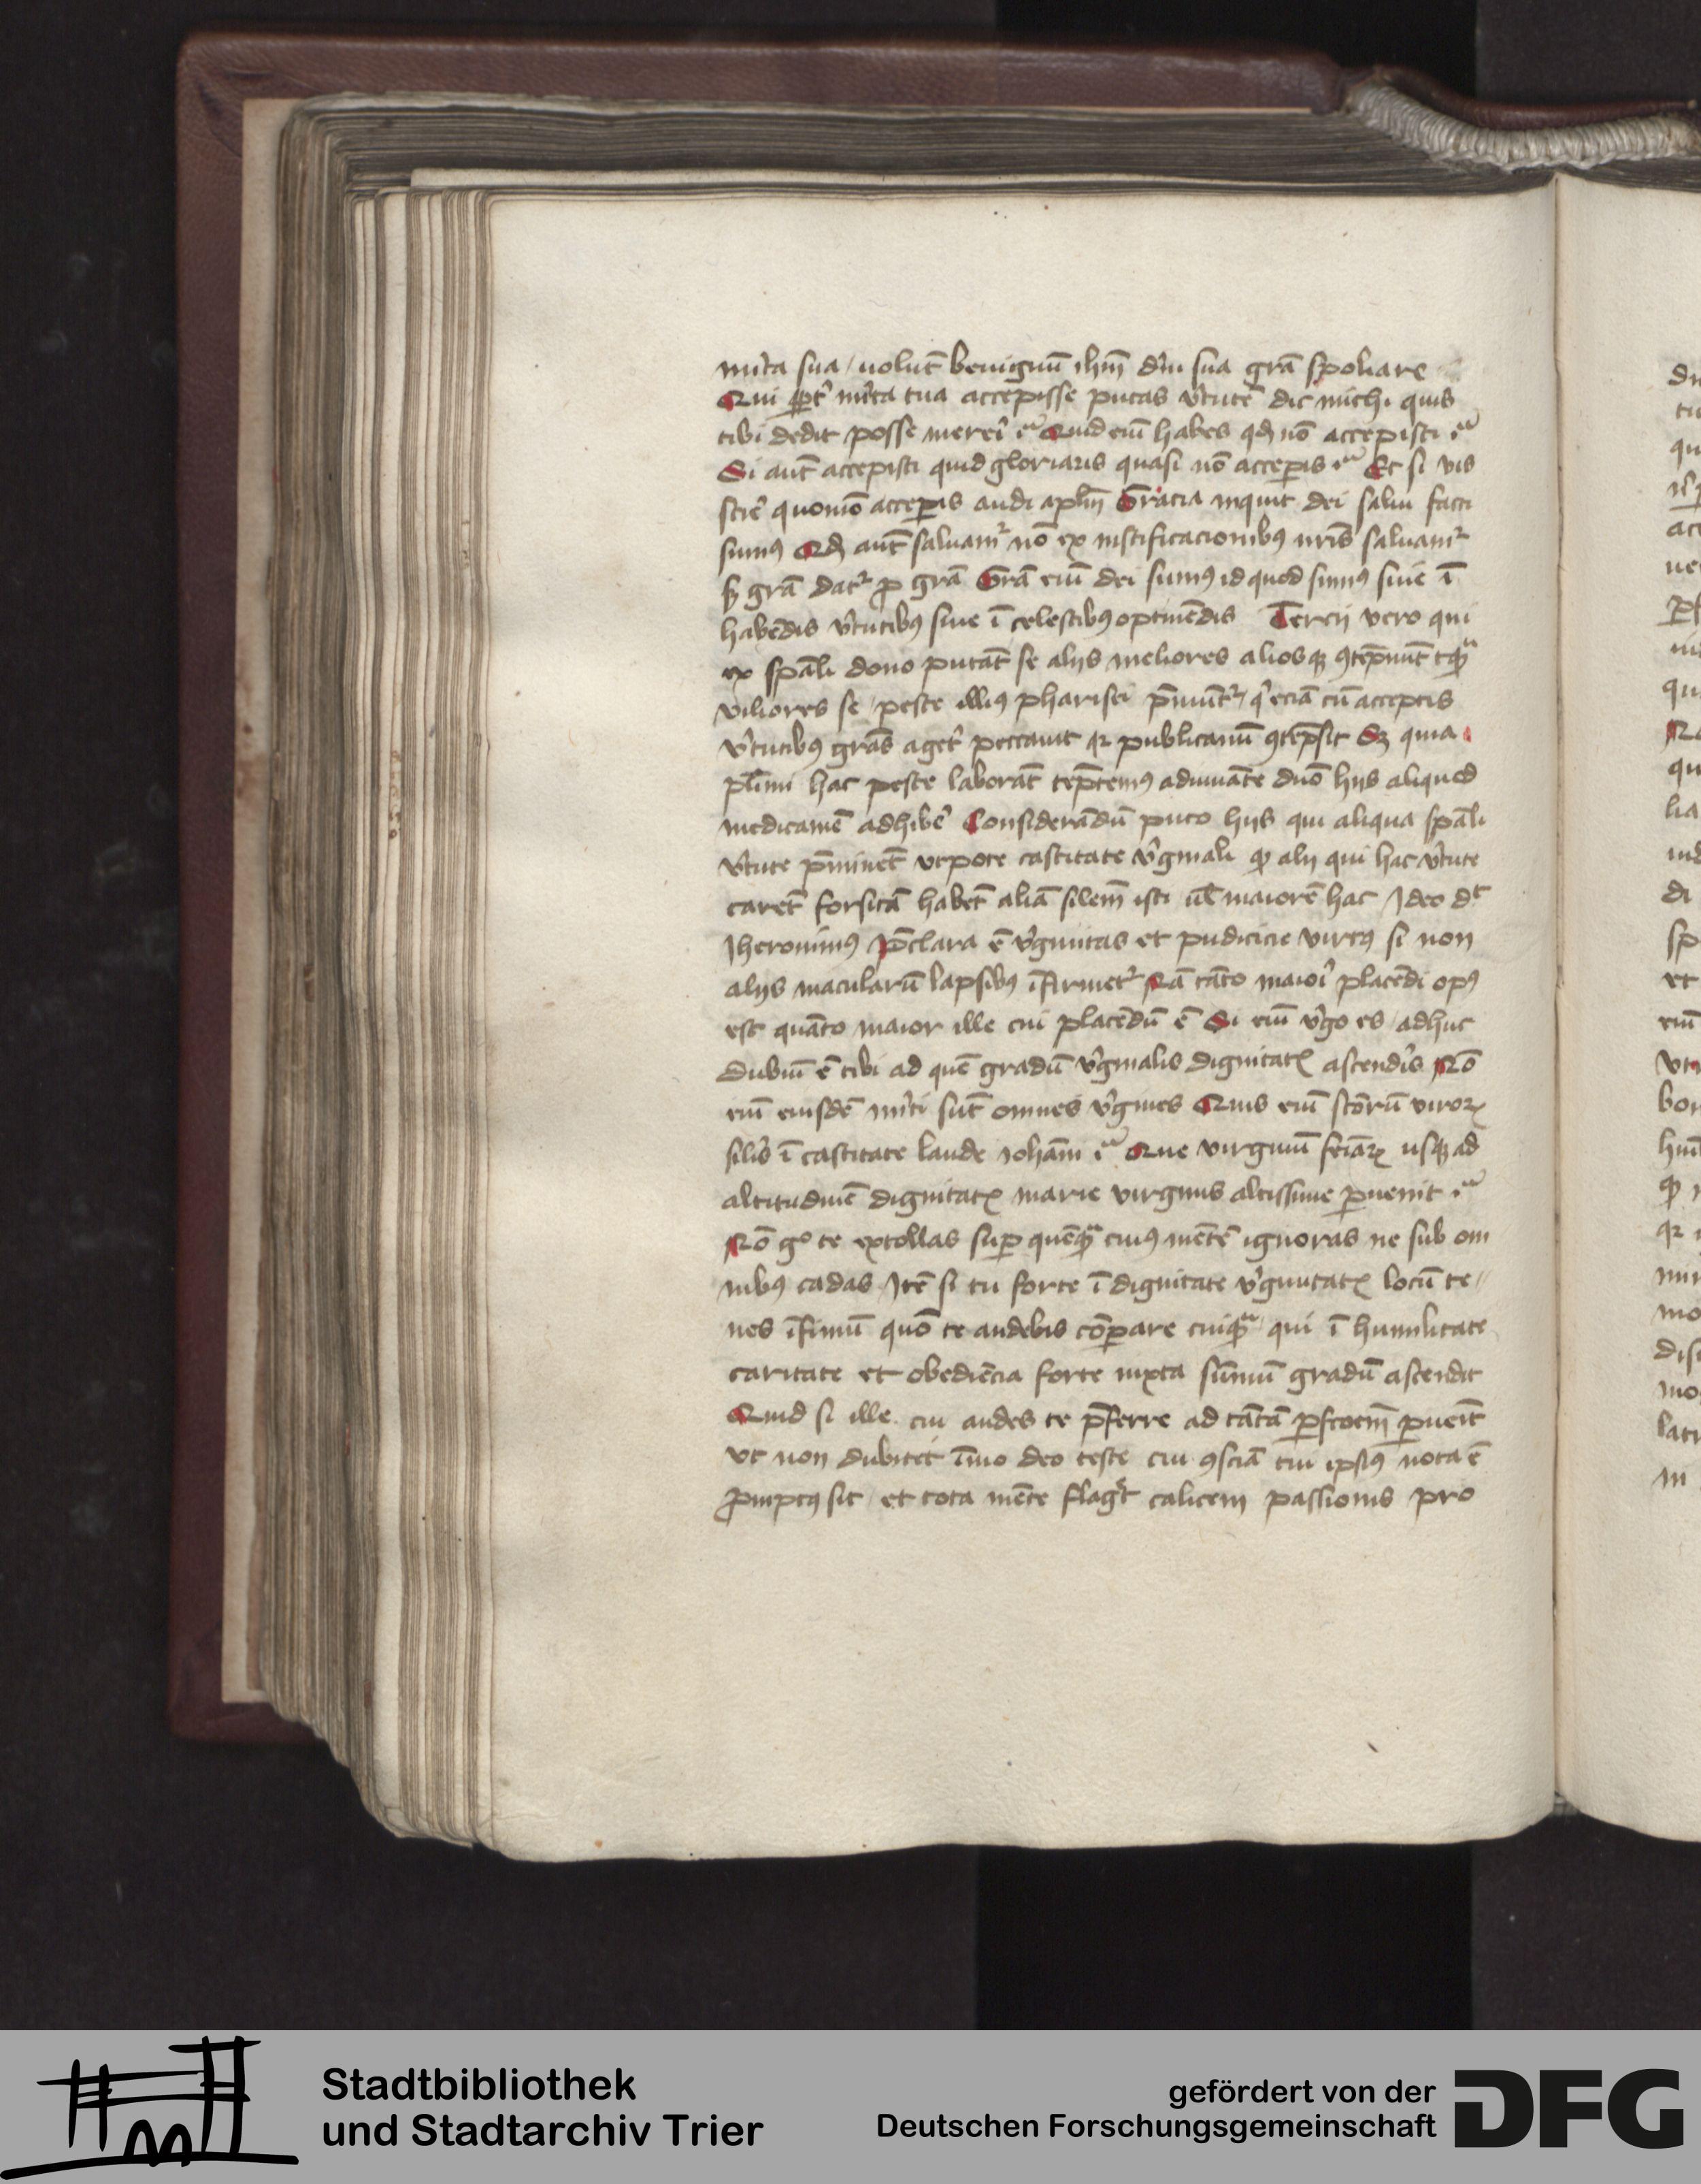 mi͛ta sua / nolu͛t benignū ihm̄ dn̄i sua grā spoliare
Qui ꝓpt͛ mi͛ta tua accepisse putas v͛tutē dic michi quis
tibi dedit posse mere͛i Quid em̄ habes qd nō accepisti
Si aut̄ accepisti quid gloriaris quasi nō accepis Et si vis
scir͛ quomō accepis audi aplm̄ Gracia inquit dei salui facti
sumꝰ Qd aut̄ saluamᷣ nō ex iustificacionibꝰ nr̄is saluamᷣ
sꝫ grā datᷣ ꝓ grā Grā em̄ dei sumꝰ id quod sumꝰ siue ī
habēdis v͛tutibꝰ siue ī celestibꝰ optinēdis Tercij vero qui
ex spāli dono putāt se alijs meliores aliosqꝫ ꝯtēpnūt tqᷓ
viliores se / peste illiꝰ pharisei p̄muntᷣ / q͛ eciā cū acceptis
v͛tutibꝰ grās aget͛ peccauit qꝛ publicanū ꝯtēpsit Sꝫ quia
pl̄imi hac peste laborāt tēptemꝰ adiuuāte dn̄o hijs aliquod
medicamē adhiber͛ Considerādū puto hijs qui aliqua spāli
v͛tute p̄minēt vtpote castitate v͛ginali qꝫ alij qui hac v͛tute
carēt forsitā habēt aliā silem̄ isti ul̄ maiorē hac Ideo dᵗ
Iheronimꝰ P̄clara ē v͛ginitas et pudicicie virtꝰ si non
alijs macularū lapsibꝰ īfirmetᷣ Nā tāto maior͛i placēdi opꝰ
est quāto maior ille cui placēdū ē Si em̄ v͛go es / adhuc
dubiū ē tibi ad quē gradū v͛ginalis dignitatꝭ ascendis Nō
em̄ eiusdē mi͛ti sūt omnes v͛gines Quis em̄ sctōrū viroꝝ
silis ī castitate laude Iohāni Que virginū feīaꝝ usqꝫ ad
altitudinē dignitatꝭ marie virginis altissime puenit
Nō gͦ te extollas sup quēqᷓ cuiꝰ mētē ignoras ne sub om
nibꝰ cadas Itē si tu forte ī dignitate v͛ginitatꝭ locū te//
nes īfimū quō te audebis cōpare cuiqᷓ qui ī humilitate
caritate et obediēcia forte iuxta sūmū gradū ascendit
Quid si ille cui audes te p̄ferre ad tātā pfcōem̄ pueīt
vt non dubitet īmo deo teste cui ꝯsciā tui ipsiꝰ nota ē
ꝓmptꝰ sit / et tota mēte flag͛t calicem passionis pro
Stadtbibliothek
und Stadtarchiv Trier
gefördert von der
Deutschen Forschungsgemeinschaft
DFG